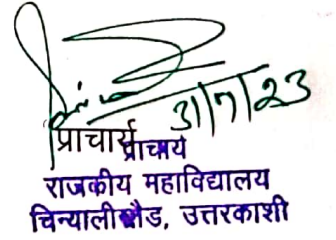 31/7/23
प्राचार्य
प्राचार्य
राजकीय महाविद्यालय
चिन्यालीसौड, उत्तरकाशी